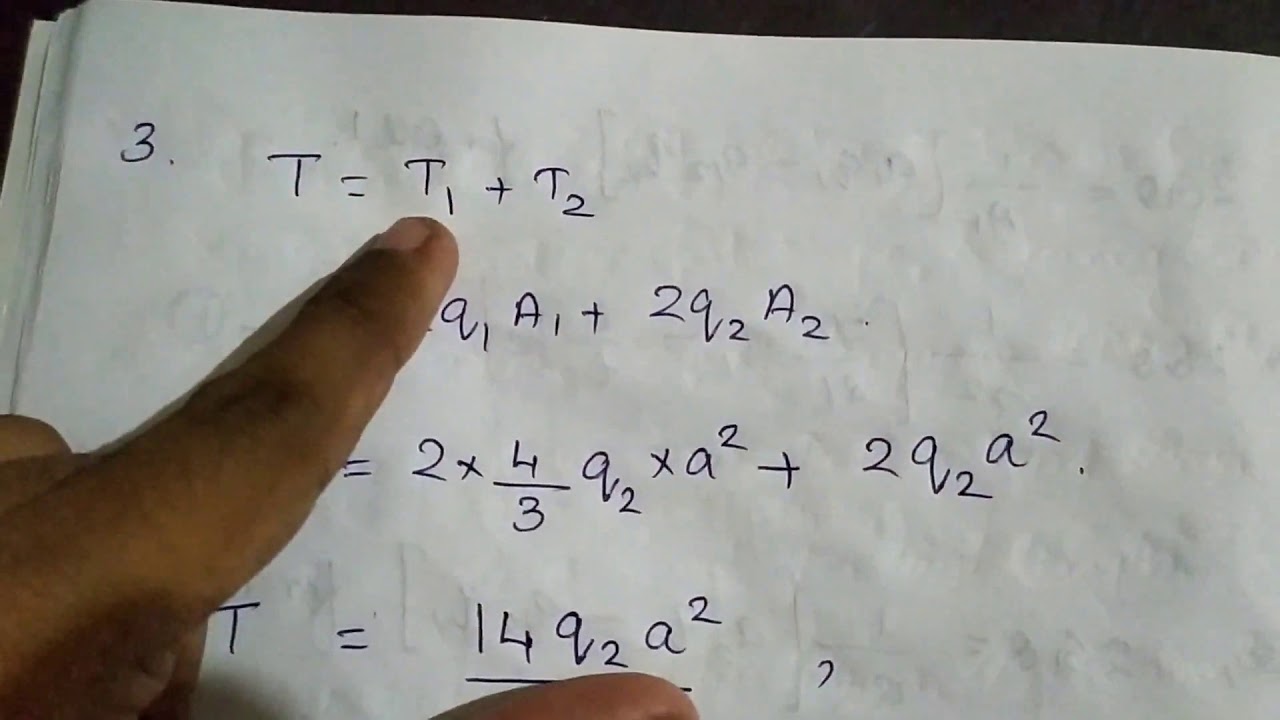 3. T = T₁ + T₂
q₁ A₁ + 2q₂ A₂ .
= 2 × 4/3 q₂ × a² + 2q₂ a² .
T = 14 q₂ a² ,